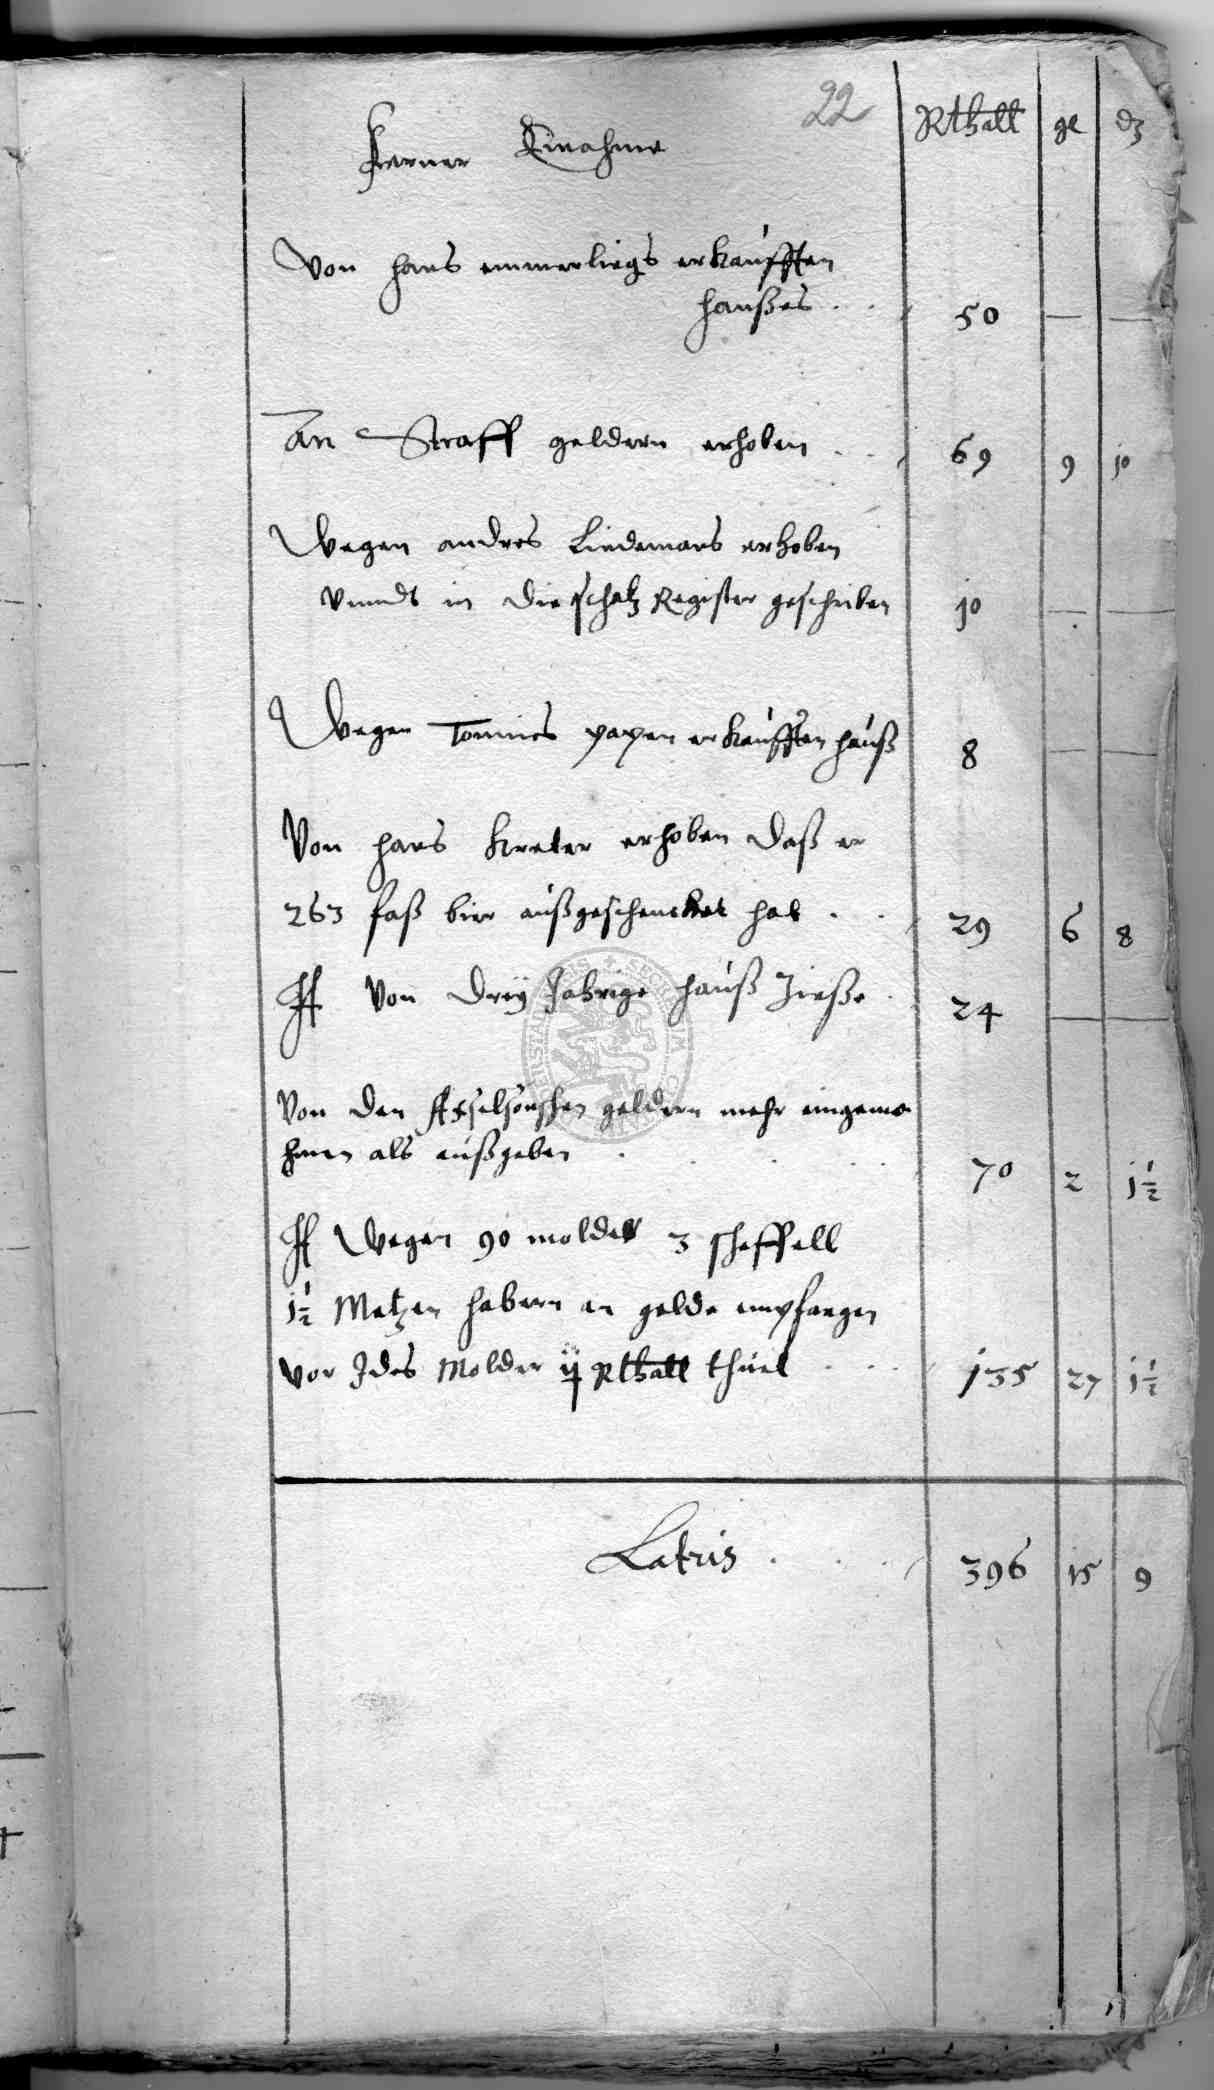 22
Ferner Einahme
Rthall gl dz
Von hans emmerliegs erkaufften
haußes . . 50 — —
An Straff geldern erhoben . . 69 9 10
Wegen andres Lindemans erhoben
vnndt in die schatz Register geschrieben 10 — —
Wegen Tonnies papen erkaufften hauß 8 — —
Von hans Kreter erhoben daß er
263 faß bier außgeschencket hat . . 29 6 8
von dreÿ Jahrige hauß Zieße . 24 — —
Von den geldern mehr eingeno
hmen als außgeben . . . . 70 2 1½
Wegen 90 molder 3 scheffell
1½ Metzen habern an gelde empfangen
vor Jdes Molder Rthall thuet . . 135 27 1½
Latris . . . 396 15 9